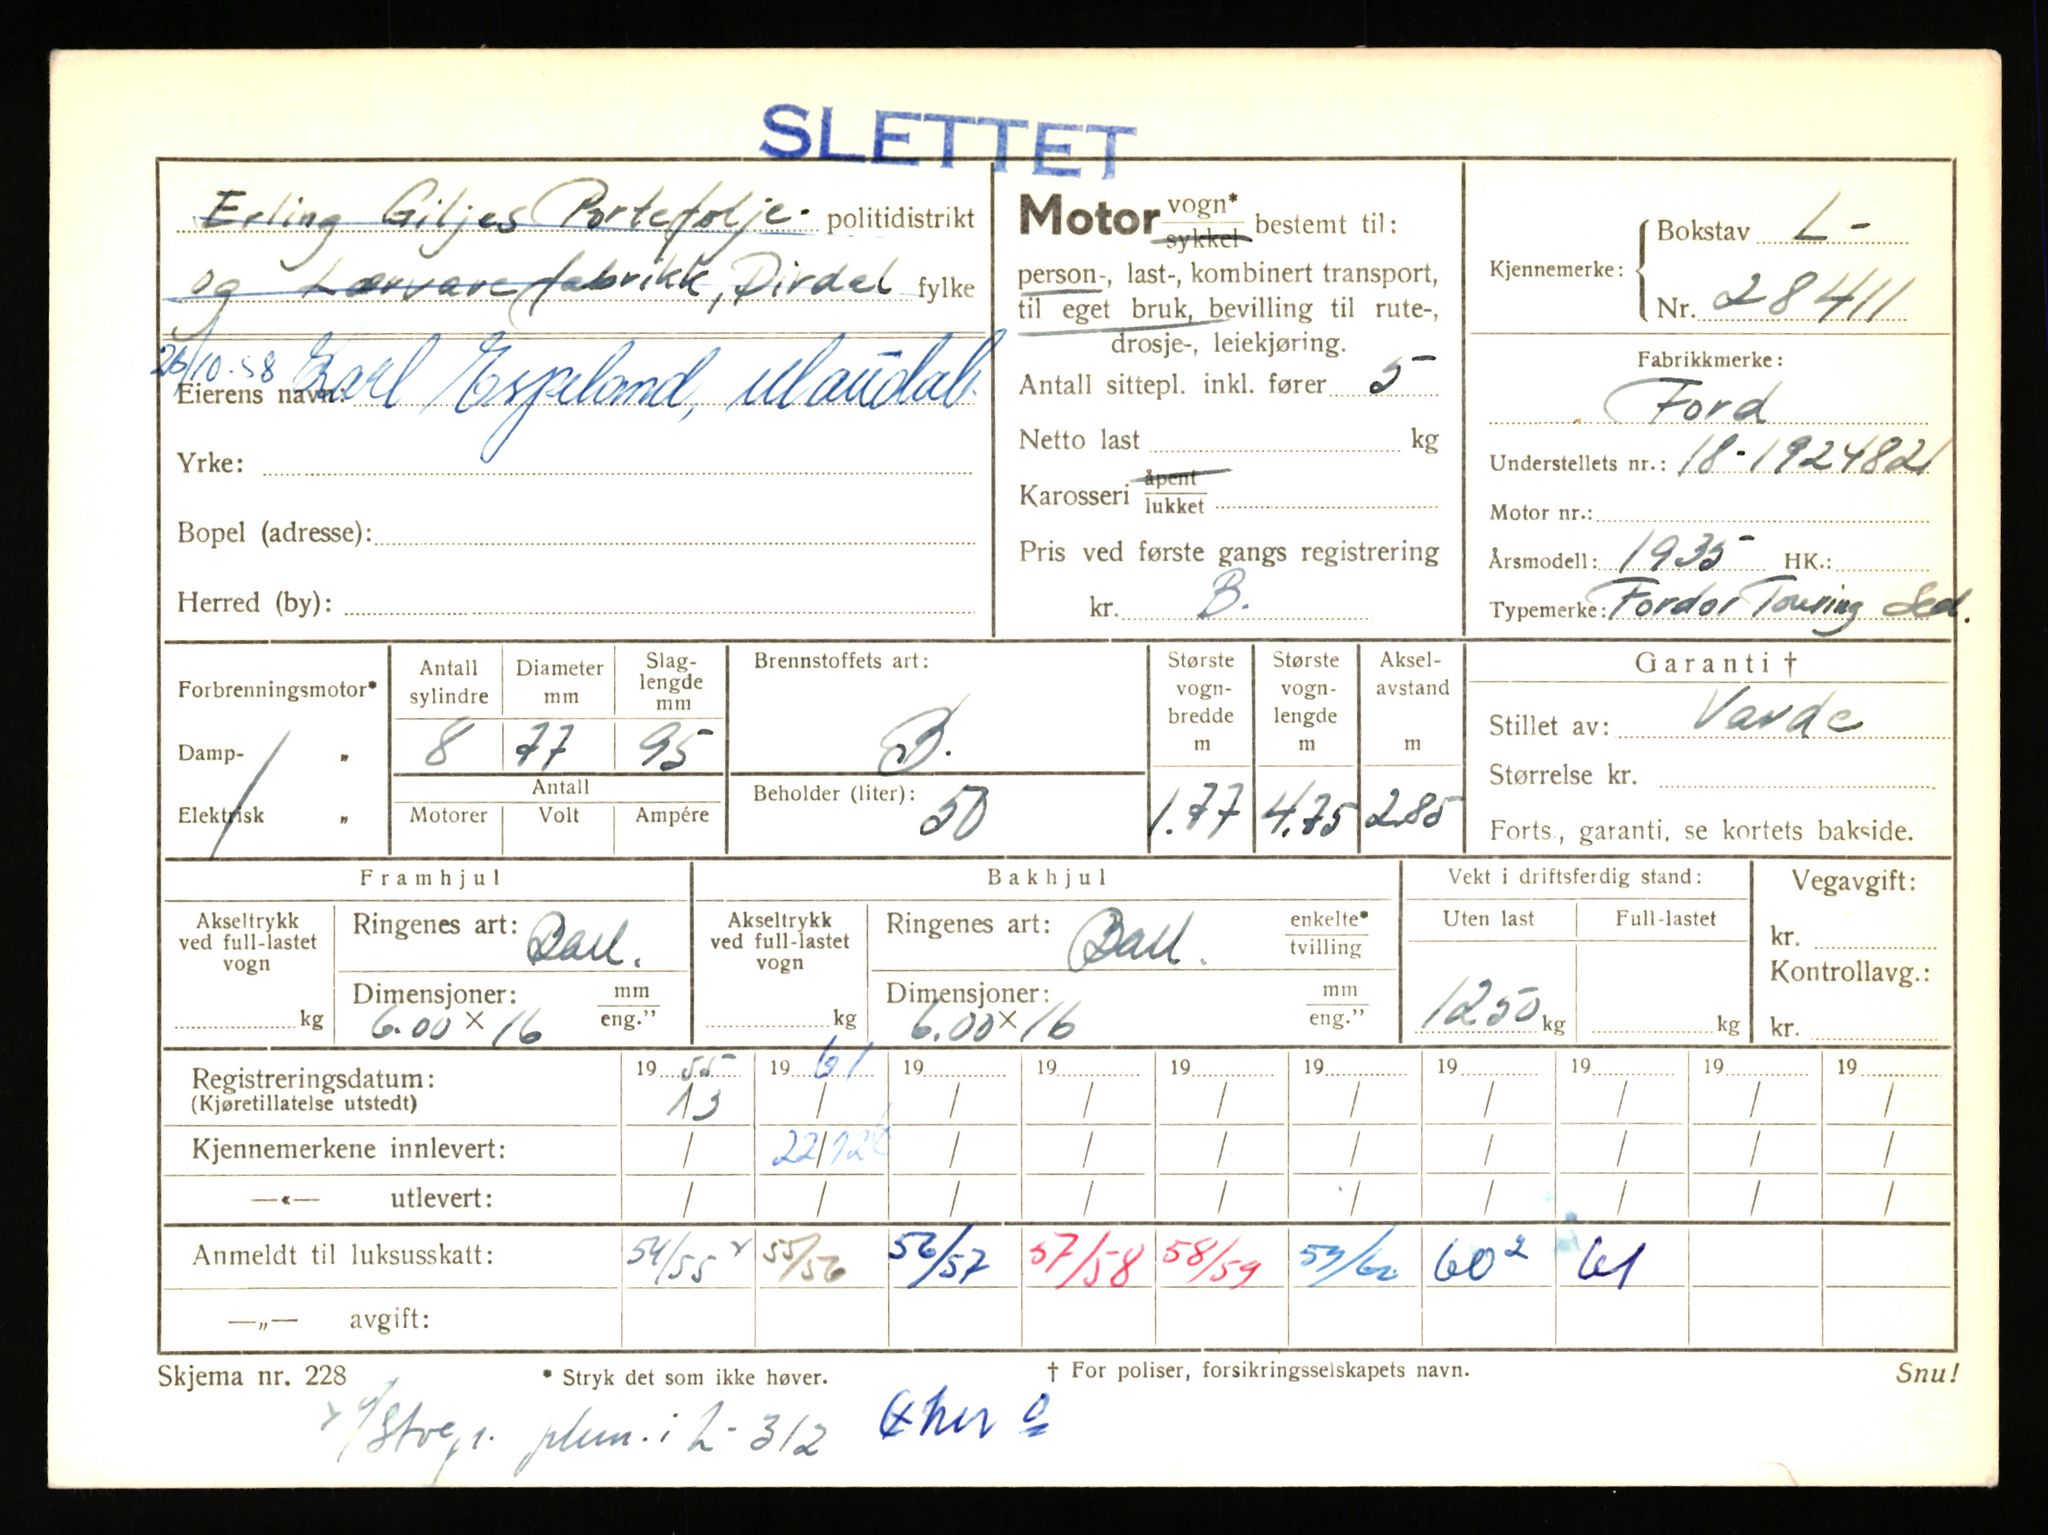 SLETTET
Erling Giljes Portefølje- politidistrikt
og Lærvarefabrikk, Dirdal fylke
25/10-58 Karl Espeland, Maudal.
Eierens navn:
Yrke:
Bopel (adresse):
Herred (by):
Motor vogn* sykkel bestemt til:
person-, last-, kombinert transport,
til eget bruk, bevilling til rute-,
drosje-, leiekjøring.
Antall sittepl. inkl. fører 5
Netto last kg
Karosseri åpent lukket
Pris ved første gangs registrering
kr. B.
Kjennemerke: Bokstav L-
Nr. 28411
Fabrikkmerke:
Ford
Understellets nr.: 18-1924821
Motor nr.:
Årsmodell: 1935 HK.:
Typemerke: Fordor Touring Sed.
Forbrenningsmotor*
Damp- "
Elektrisk "
Antall sylindre Diameter mm Slag-lengde mm
8 77 95
Antall
Motorer Volt Ampére
Brennstoffets art:
B.
Beholder (liter): 50
Største vogn-bredde m Største vogn-lengde m Aksel-avstand m
1.77 4.75 2.85
Garanti †
Stillet av: Varde
Størrelse kr.
Forts., garanti, se kortets bakside.
Framhjul
Akseltrykk ved full-lastet vogn
kg
Ringenes art: Ball.
Dimensjoner: mm eng."
6.00 × 16
Bakhjul
Akseltrykk ved full-lastet vogn
kg
Ringenes art: Ball. enkelte* tvilling
Dimensjoner: mm eng."
6.00 × 16
Vekt i driftsferdig stand:
Uten last Full-lastet
1250 kg kg
Vegavgift:
kr.
Kontrollavg.:
kr.
19 55 19 61 19 19 19 19 19 19 19 19
Registreringsdatum: 1/3 / / / / / / / / /
(Kjøretillatelse utstedt)
Kjennemerkene innlevert: / 22/12 / / / / / / / /
—«— utlevert: / / / / / / / / / /
Anmeldt til luksusskatt: 54/55 55/56 56/57 57/58 58/59 59/60 60² 61
—„— avgift:
Skjema nr. 228 * Stryk det som ikke høver. † For poliser, forsikringsselskapets navn. Snu!
i L-312